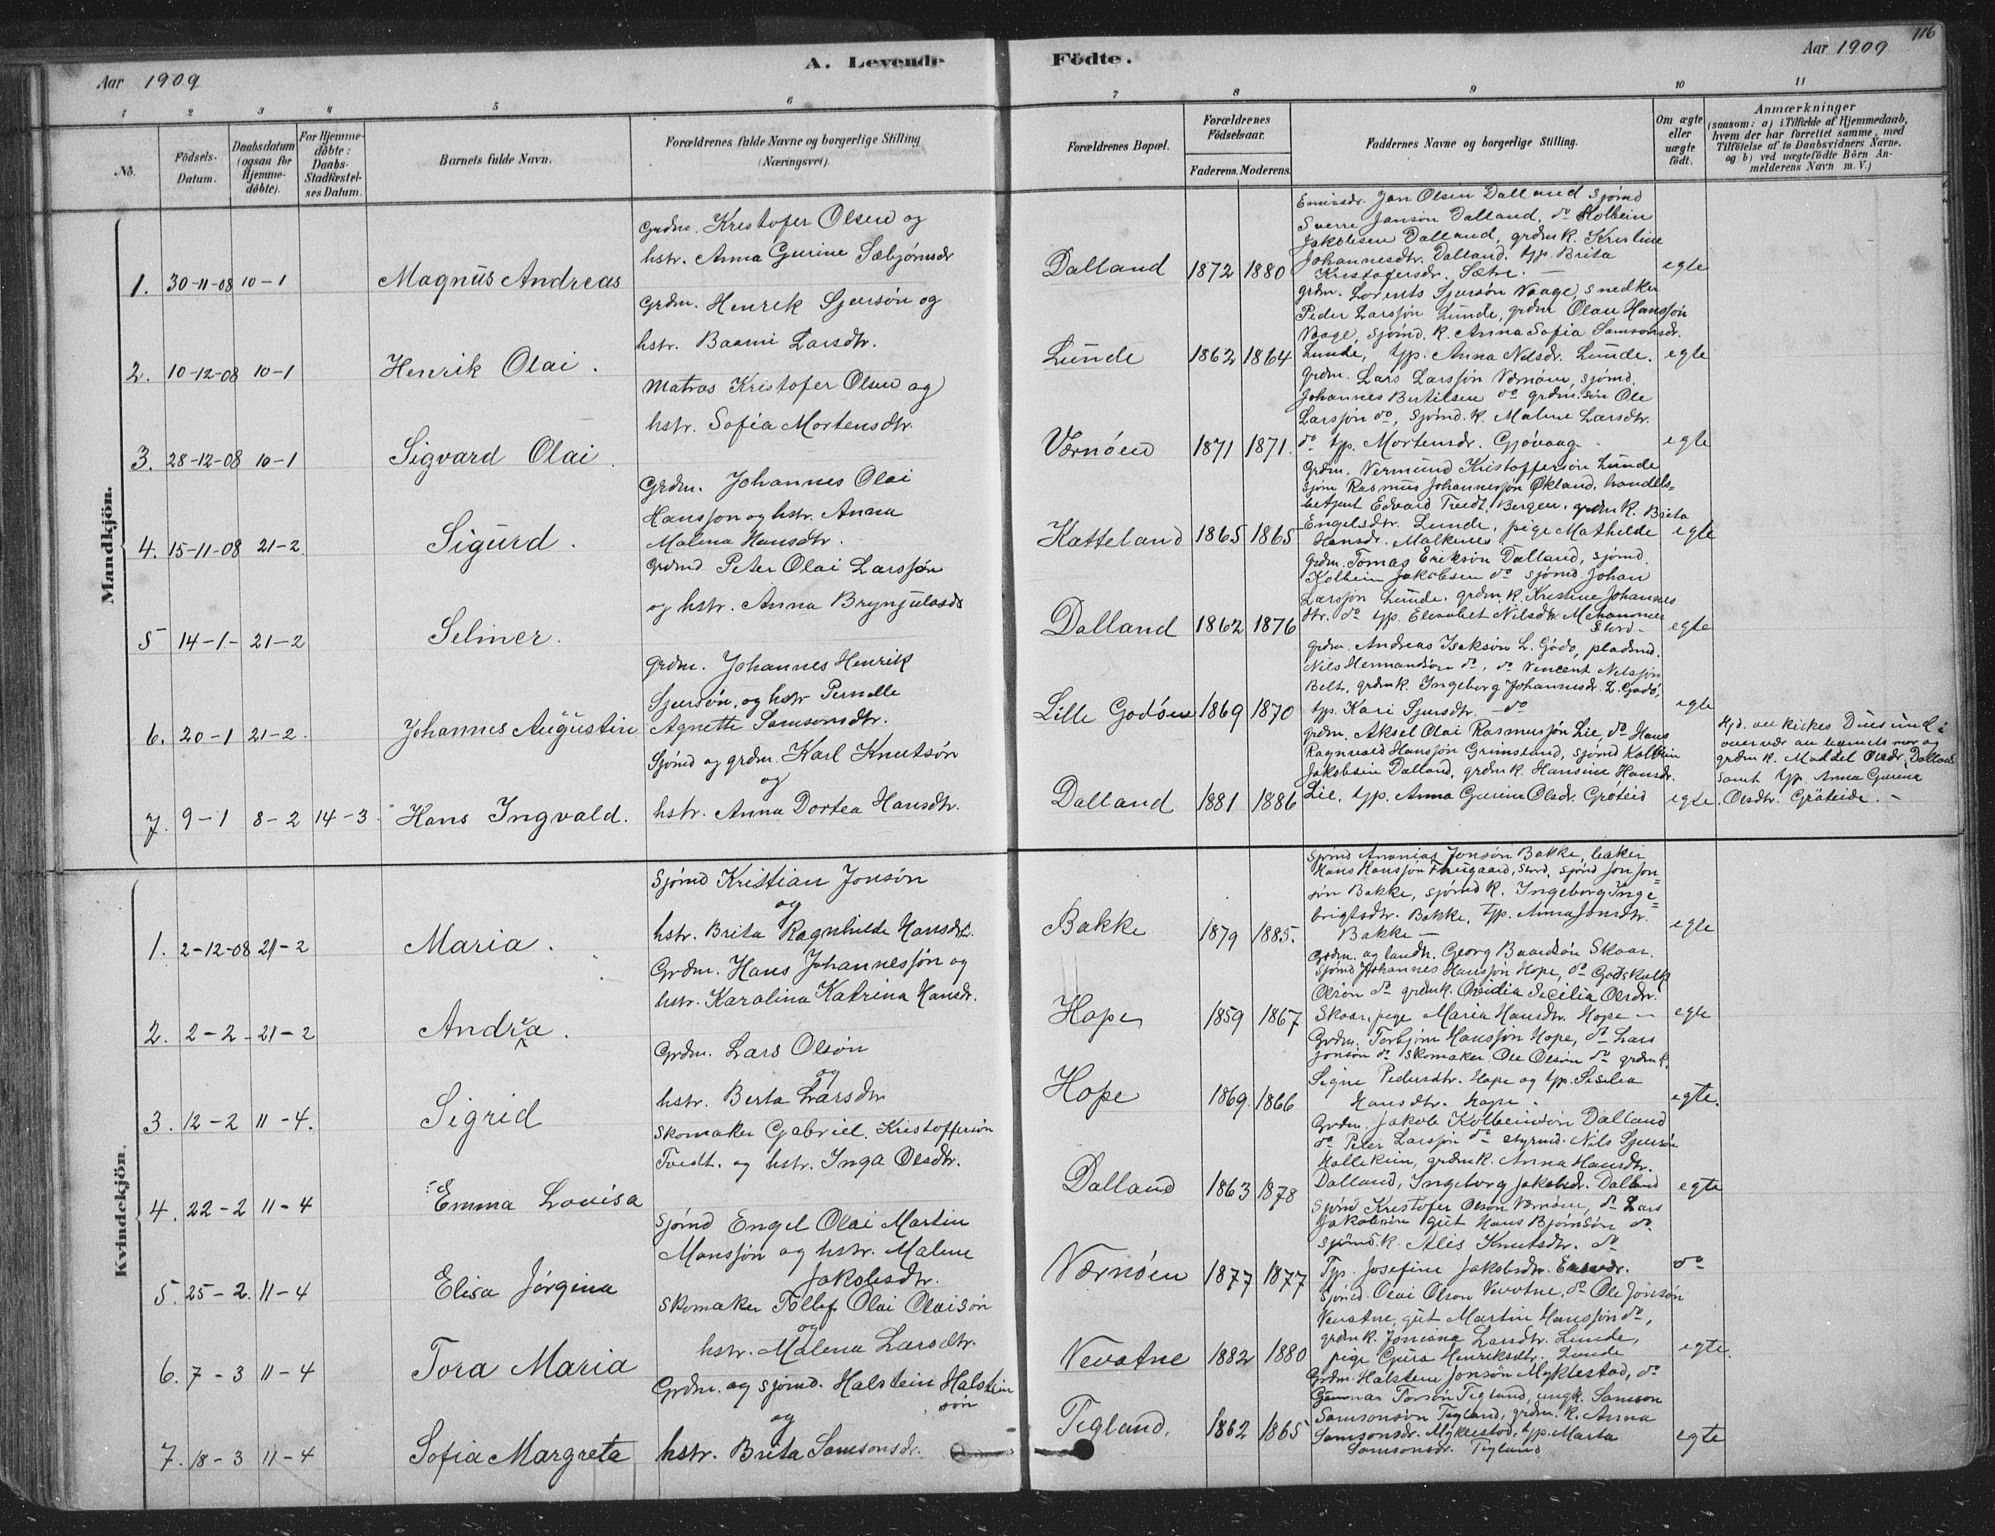 Aar 1909
A. Levende
Födte.
Aar 1909
116
1 2 3 4 5 6 7 8 9 10 11
No.
Födsels-
Datum.
Daabsdatum
(ogsaa for
Hjemme-
döbte).
For Hjemme-
döbte:
Daabs-
Stadfæstel-
ses Datum.
Barnets fulde Navn.
Forældrenes fulde Navne og borgerlige Stilling
(Næringsvei).
Forældrenes Bopæl.
Forældrenes
Födselsaar.
Faderens. Moderens.
Faddernes Navne og borgerlige Stilling.
Om ægte
eller
uægte
födt.
Anmærkninger
(saasom: a) i Tilfælde af Hjemmedaab,
hvem der har forrettet samme, med
Tilföielse af to Daabsvidners Navne,
og b) ved uægtefödte Börn An-
melderens Navn m. V.)
Mandkjön.
1. 30-11-08 10-1 Magnus Andreas
Grdm. Kristofer Olsen og
hstr. Anna Gurine Sæbjørnsdr
Dalland 1872 1880
Jan Olsen Dalland Sjømd
Sverre Jansøn Dalland, do Kolbein
Jakobsen Dalland, grdmk. Kristine
Johannesdtr. Dalland, typ. Brita
Kristofersdr. Sætre. —
egte
2. 10-12-08 10-1 Henrik Olai.
Grdm. Henrik Sjursøn og
hstr. Baarni Larsdtr.
Lunde 1862 1864
grdm. Lorents Sjursøn Vaage, snedker
Peder Larssøn Lunde, grdm Olau Hanssøn
Vaage, sjømd. k. Anna Sofia Samsonsdr.
Lunde, typ. Anna Nilsdr. Lunde.
egte
3. 28-12-08 10-1 Sigvard Olai.
Matros Kristofer Olsen og
hstr. Sofia Mortensdtr.
Værnøen 1871 1871.
Grdm. Lars Larssøn Værnøen, sjømd.
Johannes Bertilsen do grdm. søn Ole
Larssøn do, sjømd. k. Malene Larsdtr.
do typ. Mortensdr. Gjøvaag.
egte
4. 15-11-08 21-2 Sigurd.
Grdm. Johannes Olai
Hanssøn og hstr. Anna
Malena Hansdtr.
Katteland 1865 1865
Grdm. Vermund Kristofferson Lunde
sjøm Rasmus Johannessøn Økland, handels-
betjent Edvard Tvedt, Bergen, grdmk. Brita
Engelsdtr. Lunde, pige Mathilde
Hansdr. Malkenes
egte
5 14-1- 21-2 Selmer.
Grdmd Peter Olai Larssøn
og hstr. Anna Brynjulvsdr
Dalland 1862 1876
Grdm. Tomas Eriksøn Dalland, sjømd.
Kolbein Jakobsen do sjømd Johan
Larssøn Lunde, grdm. k. Kristine Johannes
dtr. do typ. Elisabet Nilsdtr.
egte
6. 20-1 21-2. Johannes Augustin
Grdm. Johannes Henrik
Sjursøn, og hstr Pernelle
Agnette Samsonsdtr.
Lille Godøen 1869 1870
grdm. Andreas Isaksøn L. Godø, pladsmd.
Nils Hermandsøn do, do Vincent Nilssøn
Belt, grdmk. Ingeborg Johannesdr. L. Godø,
typ. Kari Sjursdtr. — do
egte
7. 9-1 8-2 14-3. Hans Ingvald.
Sjømd og grdm. Karl Knutsøn
og
hstr. Anna Dortea Hansdtr.
Dalland 1881 1886
grdm. Aksel Olai Rasmussøn Lie, do Hans
Ragnvald Hanssøn Grimsland, sjømd Kolbein
Jakobsen Dalland, grdmk. Hansine Hansdr.
Lie, typ. Anna Gurine Olsdr.
egte.
Hjd. av kirkes. i
overvær av barnets mor og
grdm k. Maddel Olsdr. Dalland
samt typ. Anna Gurina
Olsdtr. —
Kvindekjön.
1. 2-12-08 21-2 Maria.
Sjømd Kristian Jonsøn
og
hstr. Brita Ragnhilde Hansdtr.
Bakke 1879 1885.
Sjømd Ananias Jonsøn Bakke, baker
Hans Hanssøn, Stord, sjømd Jon Jon-
søn Bakke, sjømd k. Ingeborg Inge-
brigtsdtr. Bakke, typ. Anna Jonsdtr.
Bakke —
egte
2. 2-2- 21-2 Andrea.
Grdm. Hans Johannessøn og
hstr. Karolina Katrina Hansdr.
Hope 1859 1867
Grdm. og landh. Georg Baardsøn Skaar
Sjømd Johannes Hanssøn Hope, do Godskalk
Olsøn do grdmk. Ovidia Sicilia Olsdtr.
Skaar, pige Maria Hansdtr. Hope —
egte
3. 12-2 11-4. Sigrid
Grdm. Lars Olsøn
og
hstr. Berta Larsdtr
Hope 1869. 1866
Grdm. Torbjørn Hanssøn Hope, do Lars
Jonsøn do skomaker Ole Olsøn do grdm k.
Signe Pedersdtr. Hope og typ. Sesilia
Hansdtr. Hope.
egte.
4. 22-2 11-4 Emma Lovisa
Skomaker Gabriel Kristoffersøn
Tvedt. og hstr. Inga Olsdtr.
Dalland 1863 1878
Grdm. Jakob Kolbeinsøn Dalland
do Peter Larssøn do styrmd. Nils Sjursøn
grdm k. Anna Hansdtr.
Dalland, Ingeborg Jakobsdr. Dalland
egte
5. 25-2. 11-4 Elisa Jørgina
Sjømd Engel Olai Martin
Monssøn og hstr. Malene
Jakobsdtr.
Værnøen 1877 1877
Sjømd Kristofer Olsøn Værnøen, do Lars
Jakobsen gut Hans Bjørnsøn do
sjømd. k. Alis Knutsdtr. do
Typ. Josefine Jakobsdtr.
do
6. 7-3 11-4 Tora Maria
Skomaker Tollef Olai Olaisøn
og
hstr. Malena Larsdtr.
Nevatne 1882 1880
Sjømd. Olai Olsen Vevatne, do Ole Jonsøn
Vevatne, gut Martin Hanssøn do,
grdm k. Joniana Larsdtr. Lunde,
pige Gura Henriksdtr. Lunde
egte.
7. 18-3 11-4 Sofia Margreta
Grdm. og sjømd. Halstein Halstein
søn
og
hstr. Brita Samsonsdr.
Tegland. 1862 1865
Grdm. Halstein Jonsøn Myklestad, do
Gunnar Torsøn Tegland, ungk. Samson
Samsonsøn Tegland, grdm. k. Anna
Samsonsdr. Myklestad, typ. Marta
Samsonsdr. Tegland
egte